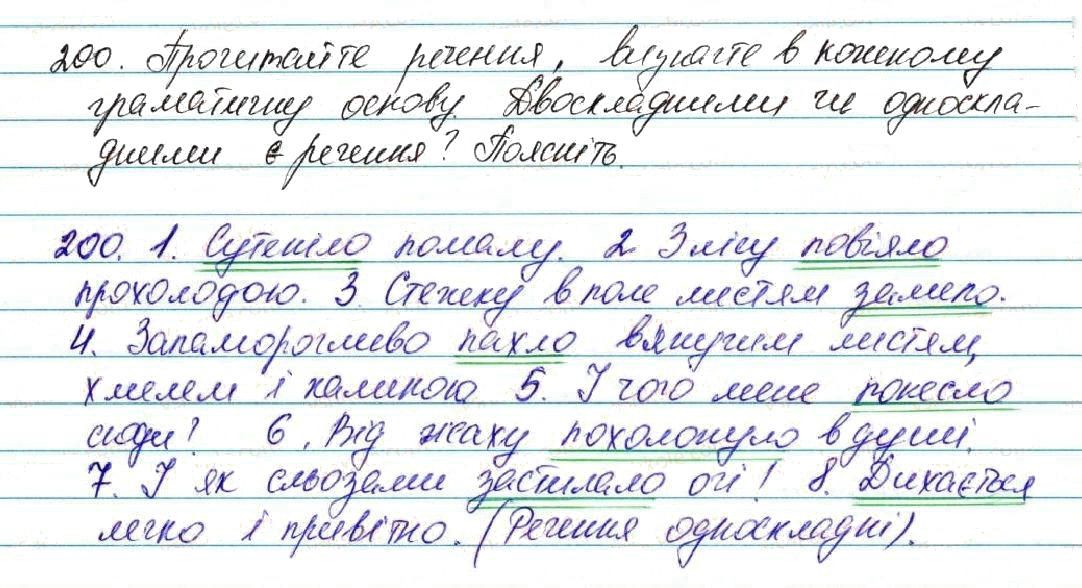 200. Прочитайте речення, визначте в кожному
граматичну основу. Двоскладними чи односкла-
дними є речення? Поясніть.
200. 1. Сутеніло помалу. 2 З лісу повіяло
прохолодою. 3. Стежку в поле листям замело.
4. Запаморочливо пахло в'янучим листям,
хмелем і калиною 5. І чого мене понесло
сюди? 6. Від жаху похолонуло в душі.
7. І як сльозами застилало очі! 8. Дихається
легко і привітно. (Речення односкладні).